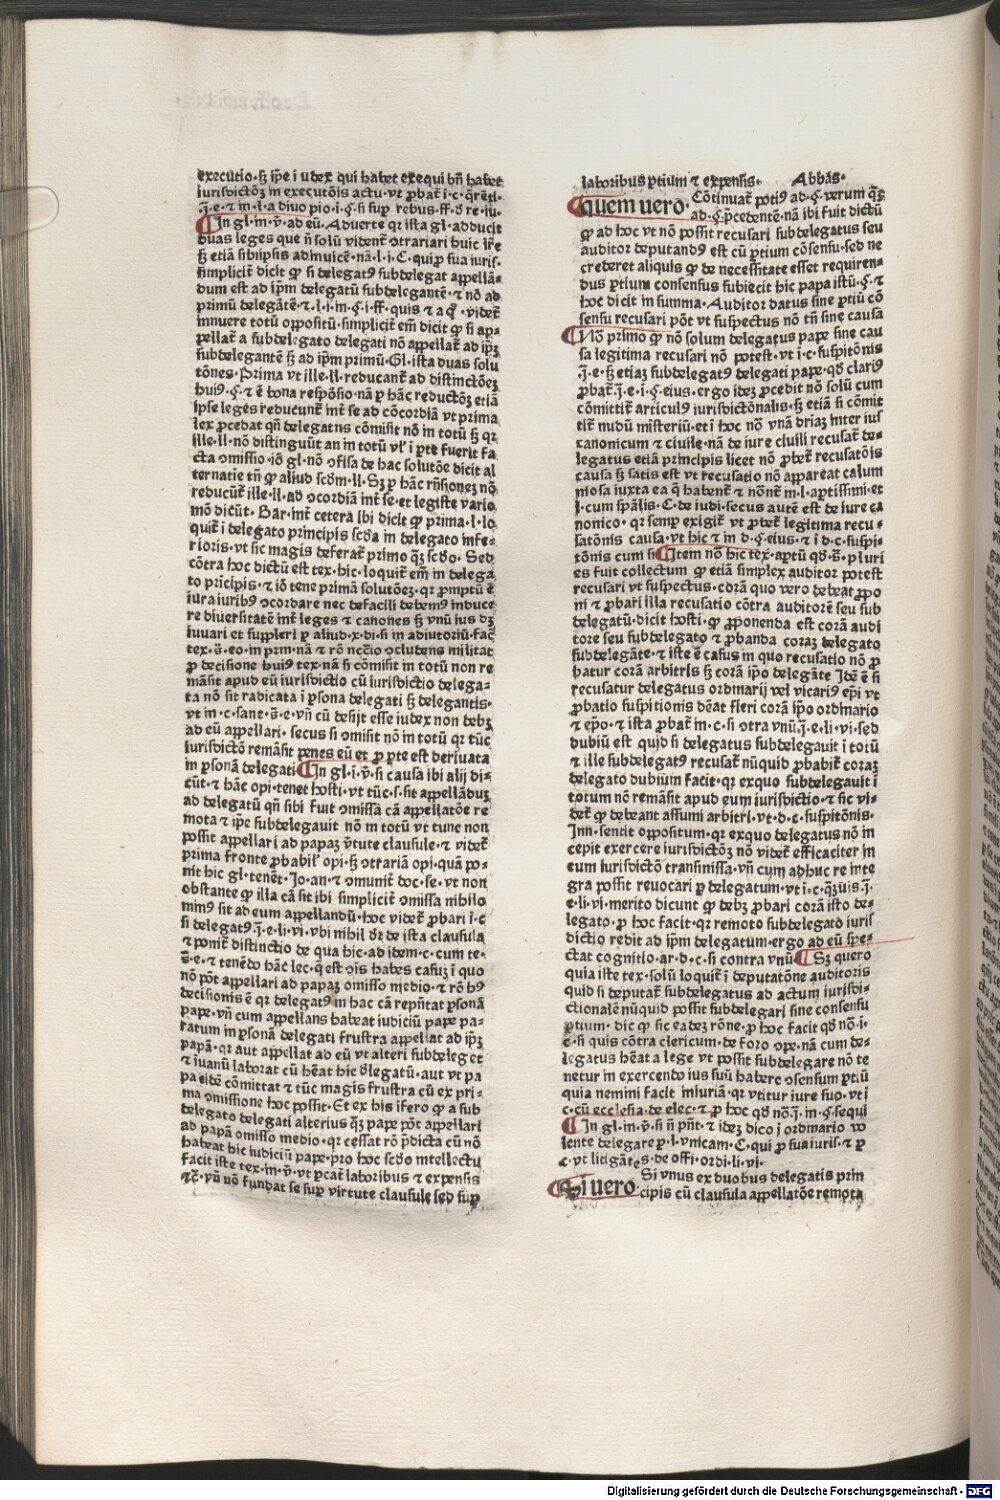 executio·ꝫ ip̄e i udex qui habet exequi bn̄ habet
iurisdictōꝫ in executōis actu·vt ꝓbat̄ i·c·q̄renti·
·q̄·e·⁊ in·l·a diuo pio·i·ꝫ·si sup̱ rebus·ff·ꝺ re·iu·
¶In gl·in·ꝟ·ad eū·Aduerte qꝛ ista gl·adducit
duas leges que n̄ solū vident̄ ɔtrariari huic lr̄e
ꝫ etiā sibiipsis adinuicē·nā·l·i·C·qui ꝓ sua iuris·
simplicit̄ dicit ꝙ si delegatꝰ subdelegat appellā-
dum est ad ip̄m delegatū subdelegantē·⁊ nō ad
primū delegātē·⁊·l·i·in·ꝫ·i·ff·quis ⁊ a qͦ·videt̄
innuere totū oppositū·simplicit̄ em̄ dicit ꝙ si ap-
pellat̄ a subdelegato delegati nō appellat̄ ad ip̄ꝫ
subdelegantē ꝫ ad ip̄m primū·Gl·ista duas solu
tōnes·Prima vt ille·ll·reducant̄ ad distinctōeꝫ
huiꝰ·ꝫ·⁊ ē bona respōsio·nā ꝑ hāc reductōꝫ etiā
ipse leges reducunt̄ int̄ se ad cōcordiā vt prima
lex ꝓcedat qn̄ delegatus cōmisit nō in totū ꝫ qꝛ
ille·ll·nō distinguūt an in totū vl̄ i ꝑte fuerit fa
cta ɔmissio·iō gl·nō ɔfisa de hac solutōe dicit al
ternatie tn̄ ꝙ aliud scd̄m·ll·Sꝫ ꝑ hāc rn̄sionez nō
reducūt̄ ille·ll·ad ɔcordiā int̄ se·et legiste vario
mō dicūt·Bar·int̄ cetera ibi dicit ꝙ prima·l·lo
quit̄ i delegato principis scd̄a in delegato infe-
rioris·vt sic magis deferat̄ primo qꝫ scd̄o·Sed
cōtra hoc dictū est tex·hic·loquit̄ em̄ in delega
to pricipis·⁊ iō tene primā solutōeꝫ·qꝛ ꝓmptū ē
iura iuribꝰ ɔcordare nec defacili debemꝰ induce
re diuersitatē int̄ leges ⁊ canones ꝫ vnū ius dꝫ
iuuari et suppleri ꝑ aliud·x·di·si in adiutoriū·fac̄
tex·ꝟ·eo·in prin·nā ⁊ rō nccīo ɔcludens militat
ꝓ decisione huiꝰ tex·nā si cōmisit in totū non re
māsit apud eū iurisdictio cū iurisdictio delega-
ta nō sit radicata i ꝑsona delegati ꝫ delegantis·
vt in·c·sane·ꝟ·e·vn̄ cū desijt esse iudex non debꝫ
ad eū appellari·secus si ɔmisit nō in totū qꝛ tūc
iurisdictō remāsit penes eū et ꝓ ꝑte est deriuata
in ꝑsonā delegati ¶In gl·i·ꝟ·si causa ibi alij di-
cūt·⁊ hāc opi·tenet hosti·vt tūc·s·sit appellāduꝫ
ad delegatū qn̄ sibi fuit ɔmissa cā appellatōe re
mota ⁊ ip̄e subdelegauit nō in totū vt tunc non
possit appellari ad papaꝫ v̄tute clausule·⁊ videt̄
prima fronte ꝓbabil̄ opi·ꝫ ɔtrariā opi·quā po-
nit hic gl·tenēt·Jo·an·⁊ ɔmunit̄ doc·se·vt non
obstante ꝙ illa cā sit ibi simplicit̄ ɔmissa nihilo
minꝰ sit ad eum appellandū·hoc videt̄ ꝓbari i·c
si delegatꝰ·q̄·e·li·vi·vbi nihil dꝛ de ista clausula
⁊ ponit̄ distinctio de qua hic·ad idem·c·cum te·
ꝟ·e·⁊ tenēdo hāc lec·q̄ est ɔis habes casuꝫ i quo
nō pōt appellari ad papaꝫ omisso medio·⁊ rō hꝰ
decisionis ē qꝛ delegatꝰ in hac cā rep̄ntat ꝑsonā
pape·vn̄ cum appellans habeat iudiciū pape pa-
ratum in ꝑsonā delegati frustra appellat ad ip̄ꝫ
papā·qꝛ aut appellat ad eū vt alteri subdeleget
⁊ iuanū laborat cū hēat hic ꝺlegatū·aut vt pa
pa eidē cōmittat ⁊ tūc magis frustra cū ex pri-
ma ɔmissione hoc possit·Et ex his ifero ꝙ a sub
delegato delegati alterius qꝫ pape pōt appellari
ad papā omisso medio·qꝛ cessat rō p̄dicta cū nō
habeat hic iudiciū pape·ꝓro hoc scd̄o intellectu
facit iste tex·in·ꝟ·vt ꝑcat̄ laboribus ⁊ expensis
⁊c̄·vn̄ nō fundat se sup̱ virtute clausule sed sup̱
laboribus ꝑtium ⁊ expensis· Abbas·
¶Quem uero· Cōtinuat̄ potiꝰ ad·ꝫ·verum qꝫ
ad·ꝫ·p̄cedentē·nā ibi fuit dictū
ꝙ ad hoc vt nō possit recusari subdelegatus seu
auditor deputandꝰ est cū ꝑtium cōsensu·sed ne
crederet aliquis ꝙ de necessitate esset requiren-
dus ꝑtium consensus subiecit hic papa istū·ꝫ·⁊
hoc dicit in summa·Auditor datus sine ꝑtiū cō
sensu recusari pōt vt suspectus nō tn̄ sine causa
¶Nō primo ꝙ nō solum delegatus pape sine cau
sa legitima recusari nō potest·vt i·c·suspitōnis
·q̄·e·ꝫ etiaꝫ subdelegatꝰ delegati pape·qd̄ clariꝰ
ꝓbat̄·q̄·e·i·ꝫ·eius·ergo ideꝫ ꝓcedit nō solū cum
cōmittit̄ articulꝰ iurisdictōnalis·ꝫ etiā si cōmit
tit̄ nudū misteriū·et i hoc nō vnā dr̄iaꝫ inter ius
canonicum ⁊ ciuile·nā de iure ciuili recusat̄ de-
legatus etiā principis licet nō ꝓbet̄ recusatōis
causa ꝫ satis est vt recusatio nō appareat calum
niosa iuxta ea q̄ habent̄ ⁊ nōnt̄ in·l·apertissimi·et
l·cum sp̄alis·C·de iudi·secus autē est de iure ca
nonico·qꝛ semꝑ exigit̄ vt ꝓbet̄ legitima recu-
satōnis causa·vt hic ⁊ in d·ꝫ·eius·⁊ i d·c·suspi-
tōnis cum si ¶Item nō hic tex·aptū qd̄·ꝟ·pluri
es fuit collectum ꝙ etiā simplex auditor potest
recusari vt suspectus·corā quo vero debeat ꝓpo
ni ⁊ ꝓbari illa recusatio cōtra auditorē seu sub
delegatū·dicit hosti·ꝙ ꝓponenda est corā audi
tore seu subdelegato ⁊ ꝓbanda coraꝫ delegato
subdelegāte·⁊ iste ē casus in quo recusatio nō ꝓ
batur corā arbitris ꝫ corā ip̄o delegāte Idē ē si
recusatur delegatus ordinarij vel vicariꝰ ep̄i vt
ꝓbatio suspitionis dēat fieri corā ip̄o ordinario
⁊ ep̄o·⁊ ista ꝓbat̄ in·c·si ɔtra vnū·q̄·e·li·vi·sed
dubiū est quid si delegatus subdelegauit i totū
⁊ ille subdelegatꝰ recusat̄ nūquid ꝓbabit̄ coraꝫ
delegato dubium facit·qꝛ exquo subdelegauit i
totum nō remāsit apud eum iurisdictio·⁊ sic vi-
det̄ ꝙ debeant assumi arbitri·vt·d·c·suspitōnis·
Inn·sentit oppositum·qꝛ exquo delegatus nō in
cepit exercere iurisdictōꝫ nō videt̄ efficaciter in
eum iurisdictō transmissa·vn̄ cum adhuc re inte
gra possit reuocari ꝑ delegatum·vt i·c·qꝫuis·q̄·
e·li·vi·merito dicunt ꝙ debꝫ ꝓbari corā isto de-
legato·ꝓ hoc facit·qꝛ remoto subdelegato iuris
dictio redit ad ip̄m delegatum·ergo ad eū spe-
ctat cognitio·ar·d·c·si contra vnū ¶Sꝫ quero
quia iste tex·solū loquit̄ i deputatōne auditoris
quid si deputat̄ subdelegatus ad actum iurisdi-
ctionalē nūquid possit subdelegari sine consensu
ꝑtium·dic ꝙ sic eadeꝫ rōne·ꝓ hoc facit qd̄ nō·i·
c·si quis cōtra clericum·de foro ɔpe·nā cum de-
legatus hēat a lege vt possit subdelegare nō te
netur in exercendo ius suū habere ɔsensum ꝑtiū
quia nemini facit iniuriā·qꝛ vtitur iure suo·vt i
c·cū ecclesia·de elec·⁊ ꝓ hoc qd̄ nō·q̄·in·ꝫ·sequi
¶In gl·in·ꝟ·si n̄ p̄nt·⁊ ideꝫ dico i ordinario vo
lente delegare ꝑ·l·vnicam·C·qui ꝓ sua iuris·⁊ ꝑ
c·vt litigātes·de offi·ordi·li·vi·
¶Si uero Si vnus ex duobus delegatis prin
cipis cū clausula appellatōe remota
Digitalisierung gefördert durch die Deutsche Forschungsgemeinschaft · DFG